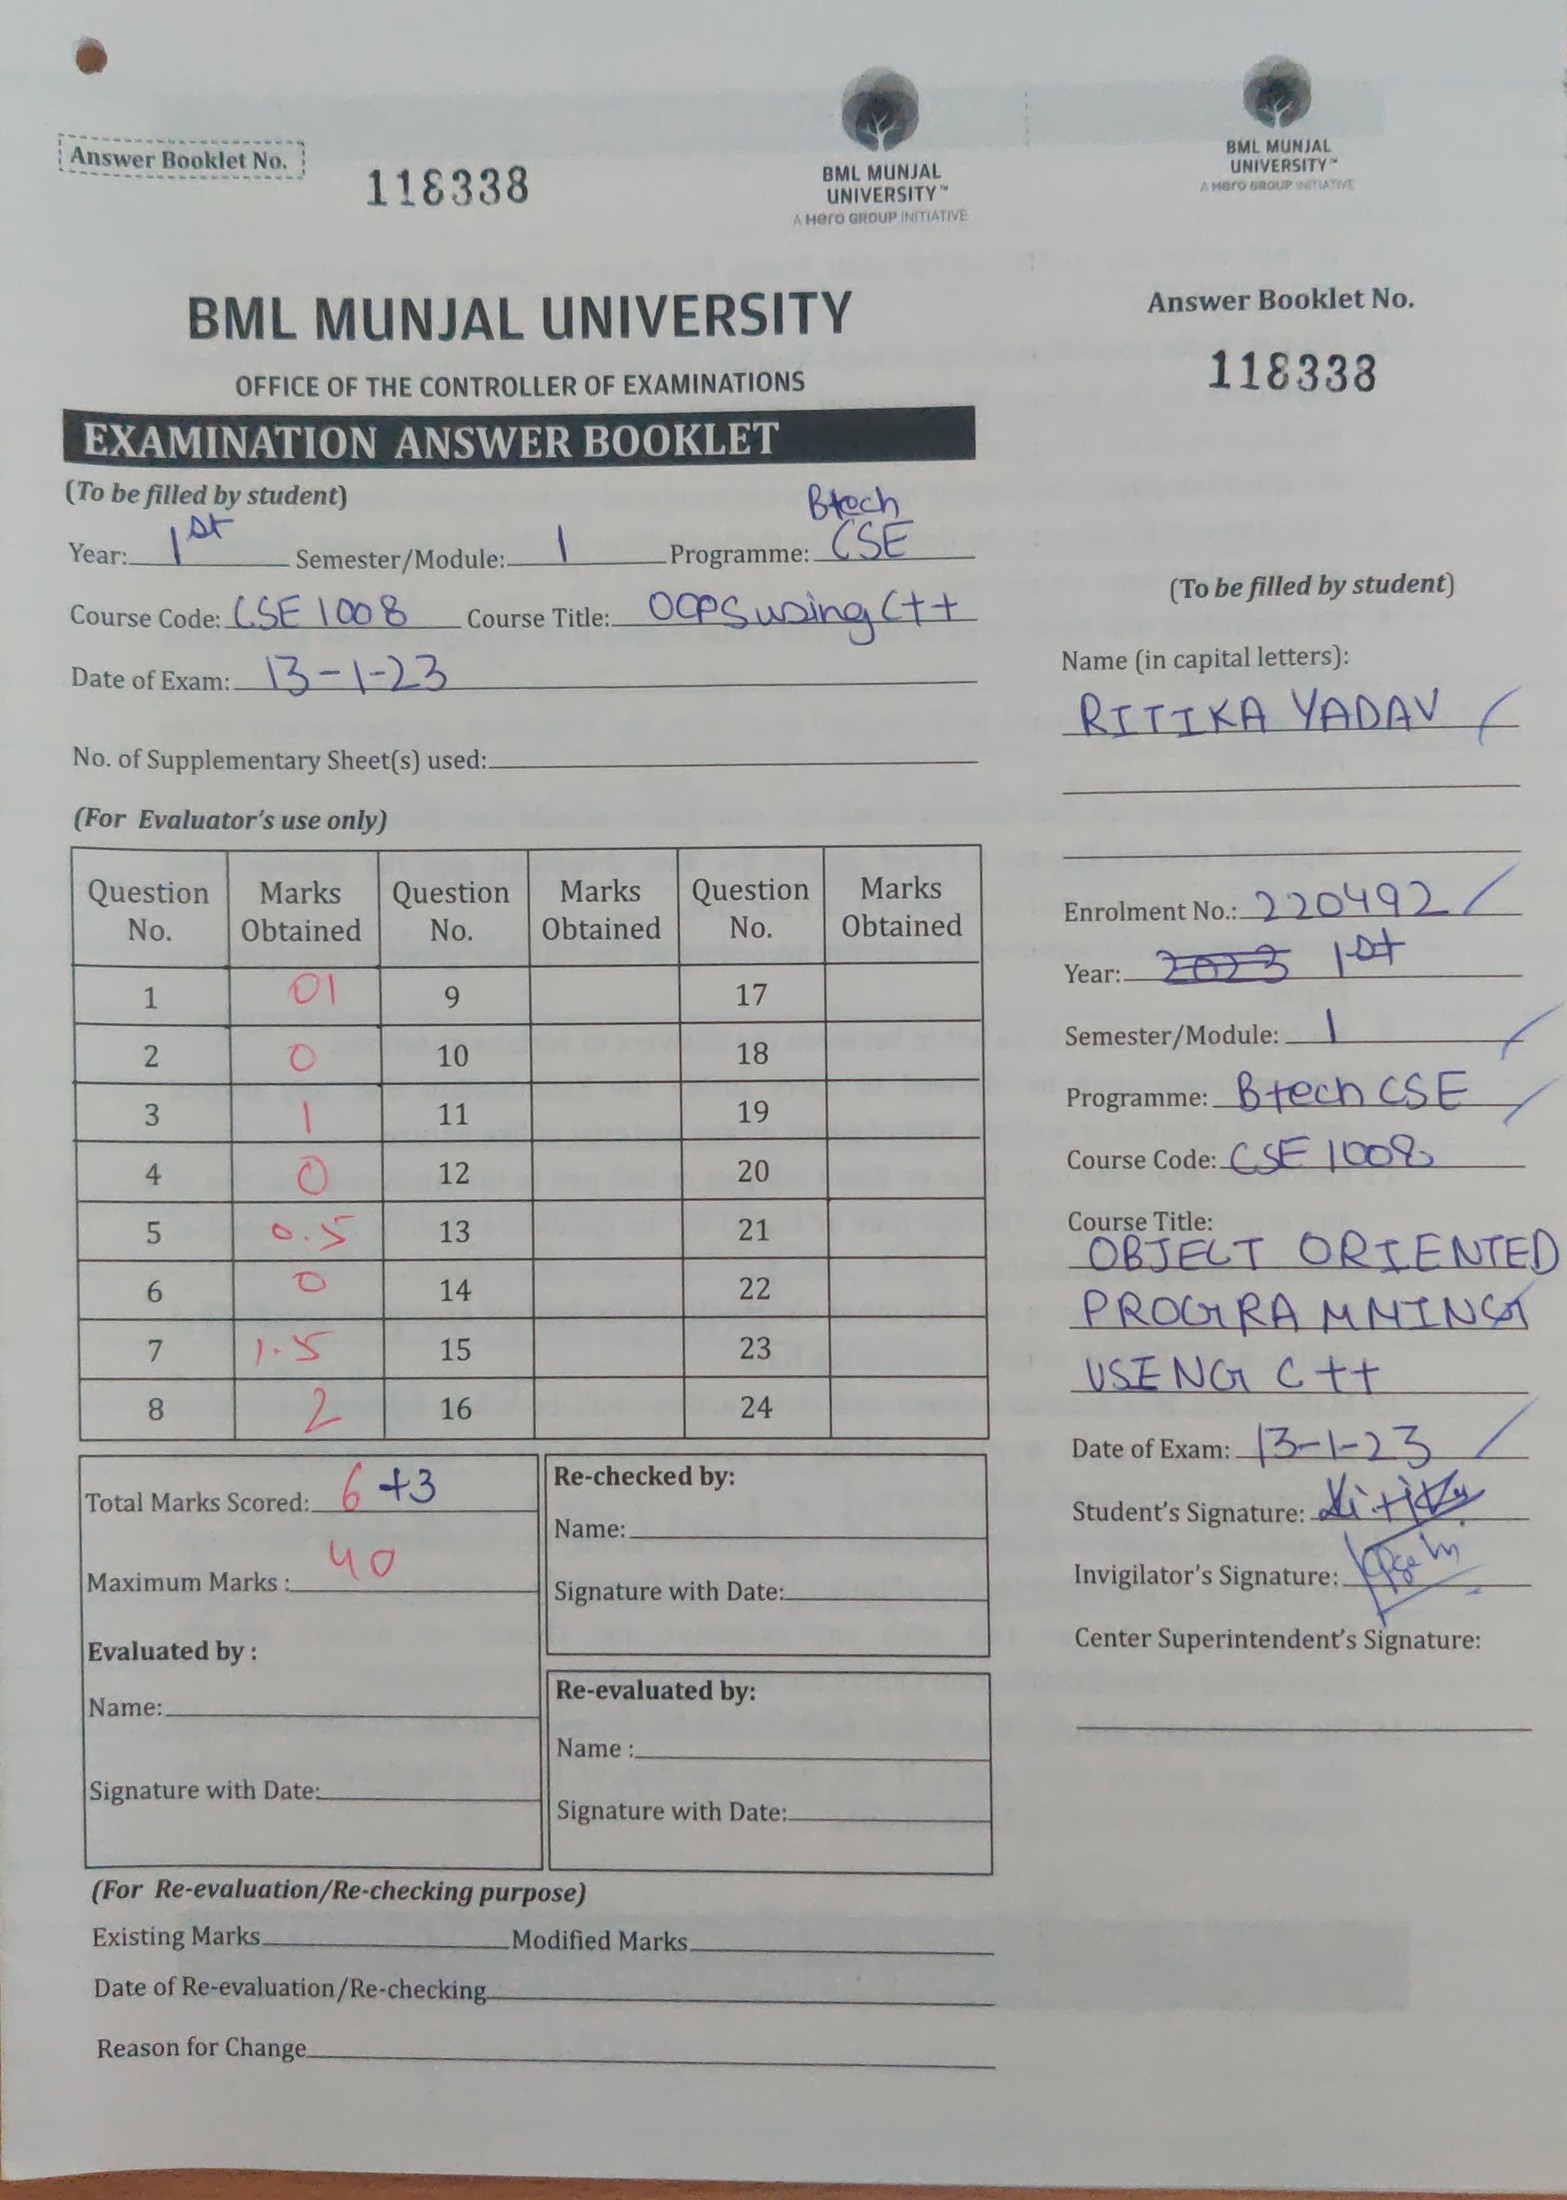 Answer Booklet No.
118338
BML MUNJAL
UNIVERSITY™
A Hero GROUP INITIATIVE
BML MUNJAL UNIVERSITY
OFFICE OF THE CONTROLLER OF EXAMINATIONS
EXAMINATION ANSWER BOOKLET
(To be filled by student)
Btech
Year: 1st Semester/Module: 1 Programme: CSE
Course Code: CSE1008 Course Title: OOPS using C++
Date of Exam: 13-1-23
No. of Supplementary Sheet(s) used:
(For Evaluator's use only)
Question No. Marks Obtained Question No. Marks Obtained Question No. Marks Obtained
1 01 9 17
2 0 10 18
3 1 11 19
4 0 12 20
5 0.5 13 21
6 0 14 22
7 1.5 15 23
8 2 16 24
Total Marks Scored: 6 +3
Maximum Marks : 40
Evaluated by :
Name:
Signature with Date:
Re-checked by:
Name:
Signature with Date:
Re-evaluated by:
Name :
Signature with Date:
(For Re-evaluation/Re-checking purpose)
Existing Marks Modified Marks
Date of Re-evaluation/Re-checking
Reason for Change
BML MUNJAL
UNIVERSITY™
A Hero GROUP INITIATIVE
Answer Booklet No.
118338
(To be filled by student)
Name (in capital letters):
RITIKA YADAV
Enrolment No.: 220492
Year: 2023 1st
Semester/Module: 1
Programme: Btech CSE
Course Code: CSE 1008
Course Title:
OBJECT ORIENTED
PROGRAMMING
USING C++
Date of Exam: 13-1-23
Student's Signature: Ritika
Invigilator's Signature:
Center Superintendent's Signature: